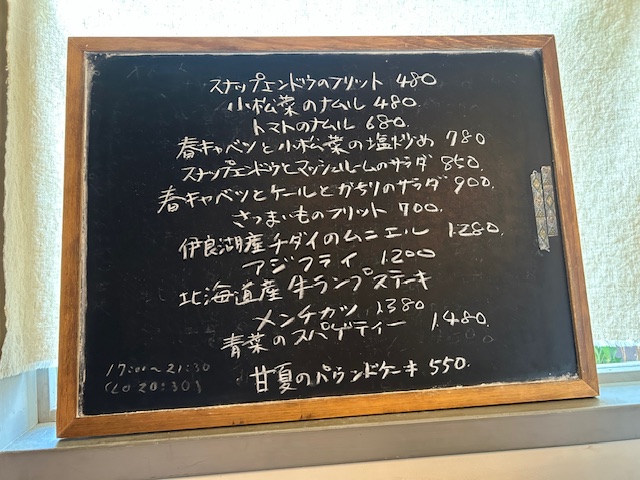 スナップエンドウのフリット 480
小松菜のナムル 480.
トマトのナムル 680.
春キャベツと小松菜の塩炒め 780
スナップエンドウとマッシュルームのサラダ 850.
春キャベツとケールとかちりのサラダ 900.
さつまいものフリット 700.
伊良湖産チダイのムニエル 1.280.
アジフライ 1.200
北海道産牛ランプステーキ
メンチカツ 1.380
青菜のスパゲティー 1.480.
甘夏のパウンドケーキ 550.
17:00〜21:30
(LO 20:30)